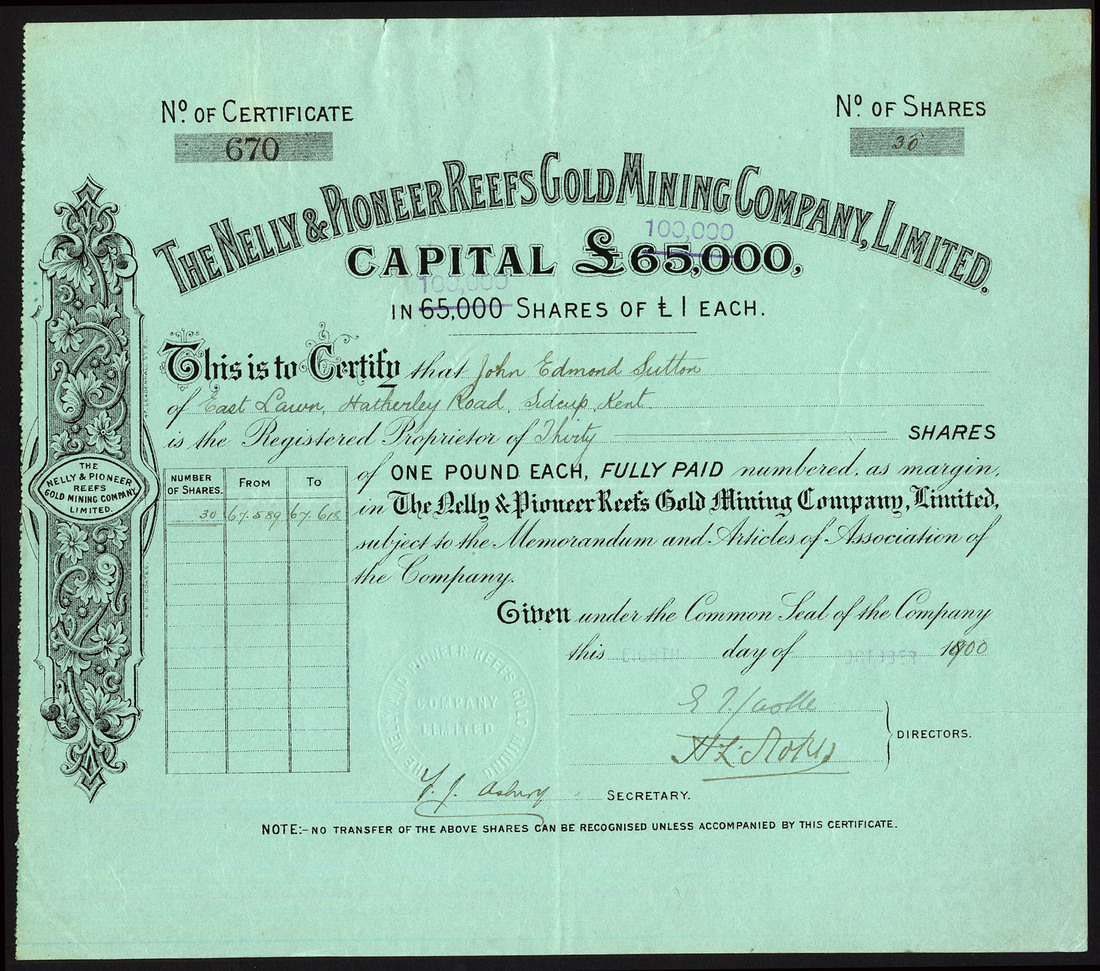 No. OF CERTIFICATE
670
No. OF SHARES
30
THE NELLY & PIONEER REEFS GOLD MINING COMPANY, LIMITED.
100,000
CAPITAL £65,000,
100,000
IN 65,000 SHARES OF £1 EACH.
This is to Certify that John Edmond Sutton
of East Lawn, Hatherley Road, Sidcup, Kent
is the Registered Proprietor of Thirty SHARES
of ONE POUND EACH, FULLY PAID numbered, as margin,
in The Nelly & Pioneer Reefs Gold Mining Company, Limited,
subject to the Memorandum and Articles of Association of
the Company.
NUMBER OF SHARES. FROM TO
30 67.589 67.618
THE
NELLY & PIONEER
REEFS
GOLD MINING COMPANY
LIMITED.
Given under the Common Seal of the Company
this EIGHTH day of OCTOBER 1900
THE NELLY AND PIONEER REEFS GOLD MINING
COMPANY
LIMITED
DIRECTORS.
SECRETARY.
NOTE:- NO TRANSFER OF THE ABOVE SHARES CAN BE RECOGNISED UNLESS ACCOMPANIED BY THIS CERTIFICATE.